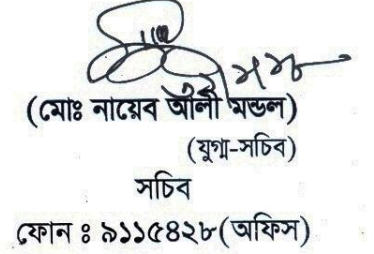 (মোঃ নায়েব আলী মন্ডল)
(যুগ্ম-সচিব)
সচিব
ফোন ঃ ৯১১৫৪২৮(অফিস)